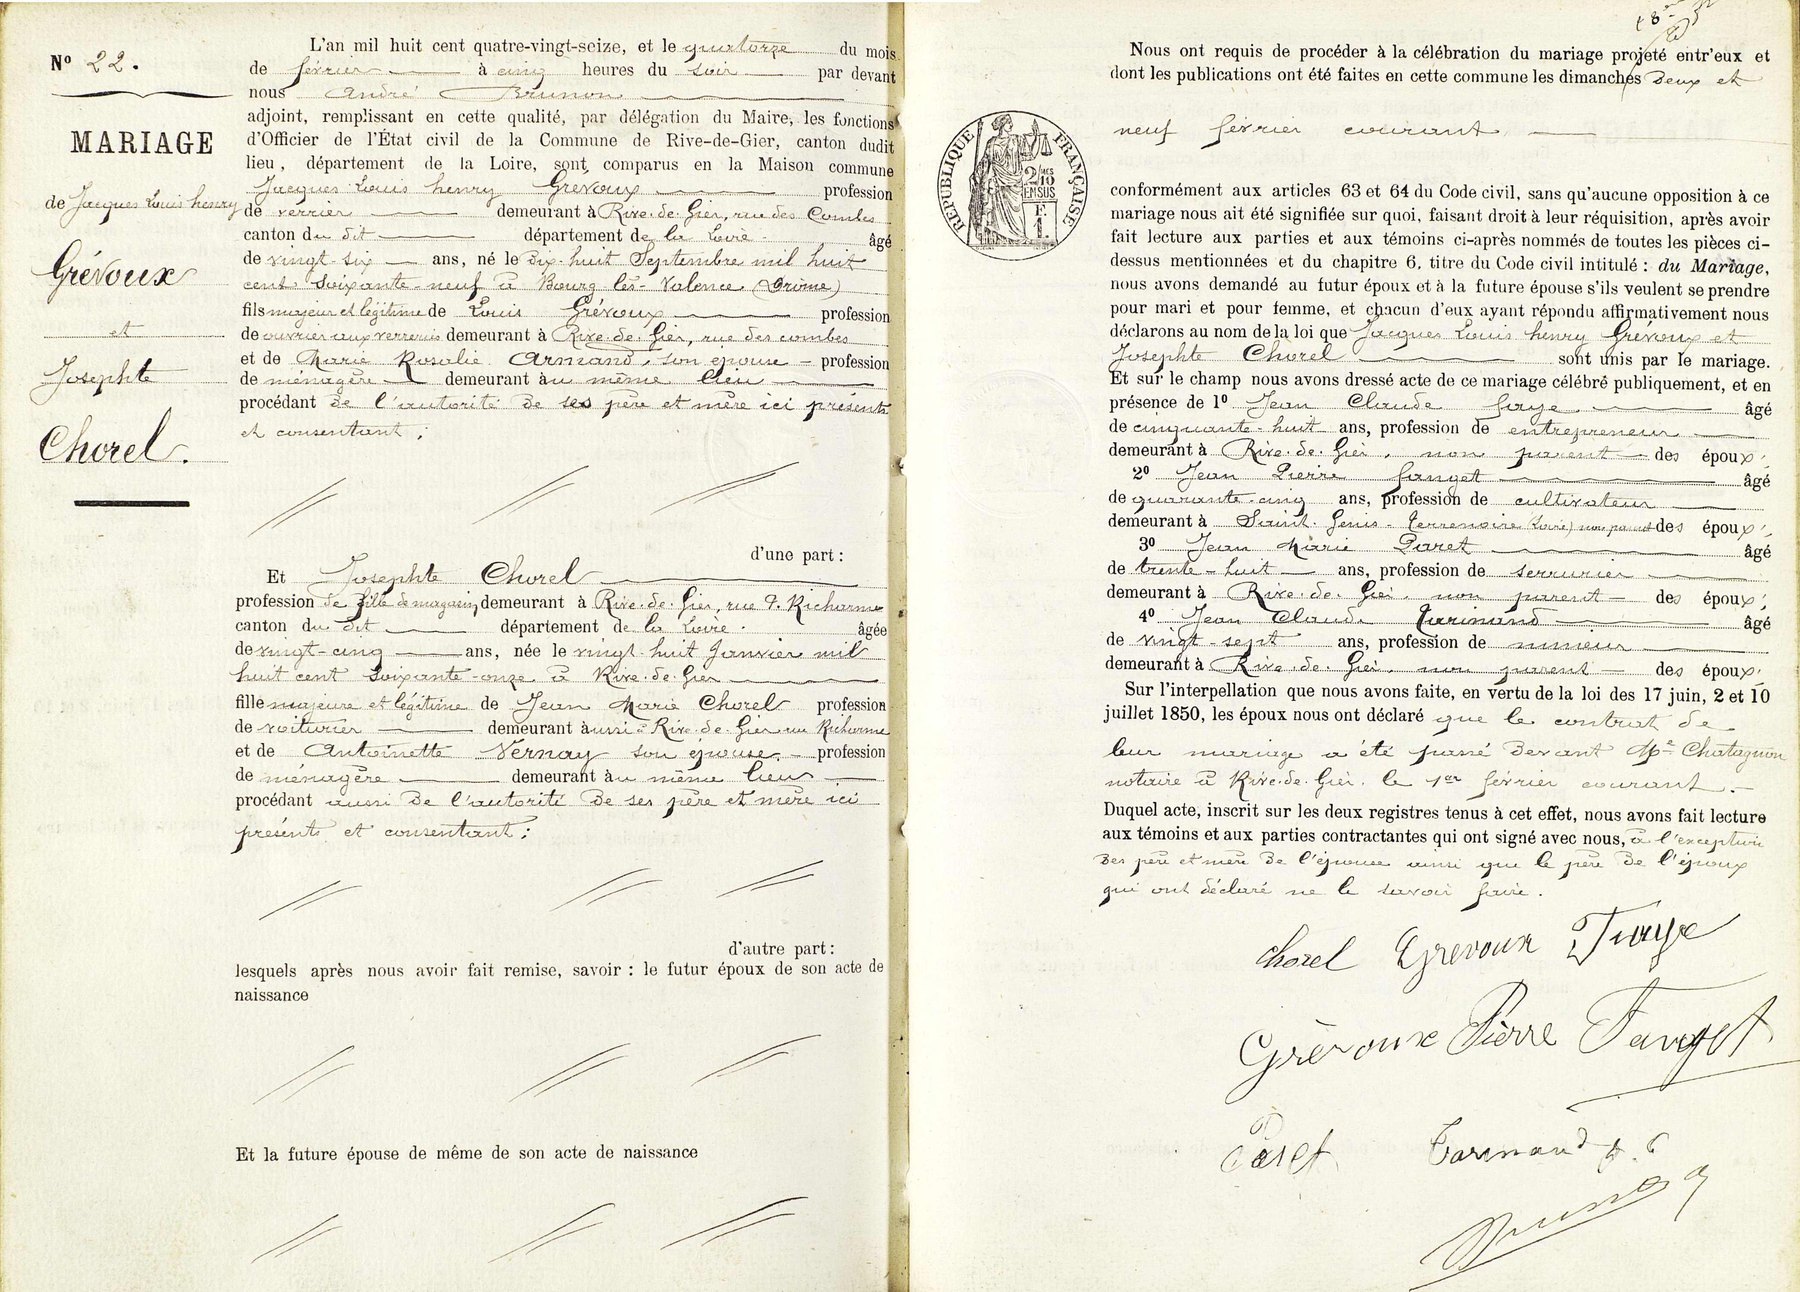 N° 22.
MARIAGE
de Jacques Louis henry
Grévoux
et
Josephte
Chorel.
L'an mil huit cent quatre-vingt-seize, et le quatorze du mois
de février à cinq heures du soir par devant
nous André Brunon
adjoint, remplissant en cette qualité, par délégation du Maire, les fonctions
d'Officier de l'État civil de la Commune de Rive-de-Gier, canton dudit
lieu, département de la Loire, sont comparus en la Maison commune
Jacques Louis henry Grévoux profession
de verrier demeurant à Rive-de-Gier, rue des Combes
canton du dit département de la Loire. âgé
de vingt-six ans, né le dix-huit Septembre mil huit
cent soixante-neuf à Bourg-lès-Valence (Drôme)
fils majeur et légitime de Louis Grévoux profession
de ouvrier aux verreries demeurant à Rive-de-Gier, rue des combes
et de Marie Rosalie Armand, son épouse profession
de ménagère demeurant au même lieu
procédant de l'autorité de ses père et mère ici présents
et consentant;
d'une part :
Et Josephte Chorel
profession de fille de magasin, demeurant à Rive-de-Gier, rue P. Richarme
canton du dit département de la Loire. âgée
de vingt-cinq ans, née le vingt-huit Janvier mil
huit cent soixante-onze à Rive-de-Gier
fille majeure et légitime de Jean Marie Chorel profession
de voiturier demeurant aussi à Rive-de-Gier rue Richarme
et de Antoinette Vernay son épouse profession
de ménagère demeurant au même lieu
procédant aussi de l'autorité de ses père et mère ici
présents et consentant;
d'autre part :
lesquels après nous avoir fait remise, savoir : le futur époux de son acte de
naissance
Et la future épouse de même de son acte de naissance
Nous ont requis de procéder à la célébration du mariage projeté entr'eux et
dont les publications ont été faites en cette commune les dimanches deux et
neuf février courant
RÉPUBLIQUE FRANÇAISE
2/10 EN SUS
conformément aux articles 63 et 64 du Code civil, sans qu'aucune opposition à ce
mariage nous ait été signifiée sur quoi, faisant droit à leur réquisition, après avoir
fait lecture aux parties et aux témoins ci-après nommés de toutes les pièces ci-
dessus mentionnées et du chapitre 6, titre du Code civil intitulé : du Mariage,
nous avons demandé au futur époux et à la future épouse s'ils veulent se prendre
pour mari et pour femme, et chacun d'eux ayant répondu affirmativement nous
déclarons au nom de la loi que Jacques Louis henry Grévoux et
Josephte Chorel sont unis par le mariage.
Et sur le champ nous avons dressé acte de ce mariage célébré publiquement, et en
présence de 1° Jean Claude faye âgé
de cinquante-huit ans, profession de entrepreneur
demeurant à Rive-de-Gier, non parent des époux;
2° Jean Pierre fanget âgé
de quarante-cinq ans, profession de cultivateur
demeurant à Saint-Genis-Terrenoire (Loire) non parent des époux;
3° Jean Marie Paret âgé
de trente-huit ans, profession de serrurier
demeurant à Rive-de-Gier, non parent des époux;
4° Jean Claude âgé
de vingt-sept ans, profession de mineur
demeurant à Rive-de-Gier, non parent des époux;
Sur l'interpellation que nous avons faite, en vertu de la loi des 17 juin, 2 et 10
juillet 1850, les époux nous ont déclaré que le contrat de
leur mariage a été passé devant Me Chatagnon
notaire à Rive-de-Gier, le 1er février courant.
Duquel acte, inscrit sur les deux registres tenus à cet effet, nous avons fait lecture
aux témoins et aux parties contractantes qui ont signé avec nous, à l'exception
des père et mère de l'épouse ainsi que le père de l'époux
qui ont déclaré ne le savoir faire.
Chorel Grevoux Faye
Grèvoux Pierre Fanget
Paret